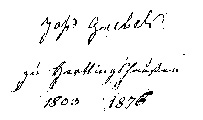 Johs Goebels
zu Herttingshausen
1803 1876